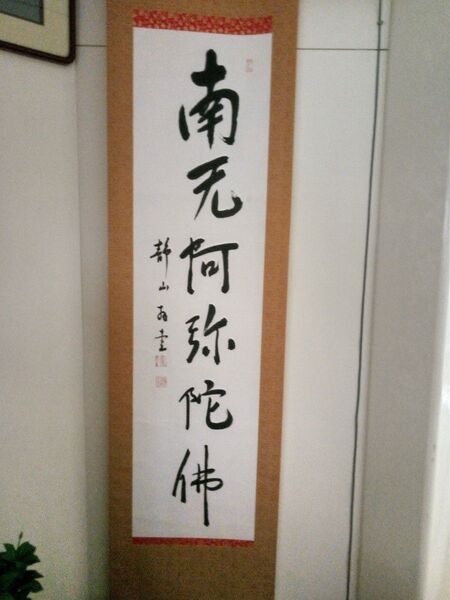 南无阿弥陀佛
静山